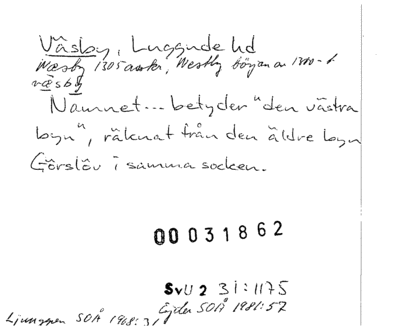 Väsby, Luggude hd
Wæsby 1305 Westby början av 1700-t
væsby
Namnet... betyder "den västra
byn", räknat från den äldre byn
Görslöv i samma socken.
00031862
SvU 2 31:1175
Ejder SOÅ 1981:57
Ljunggren SOÅ 1968:31